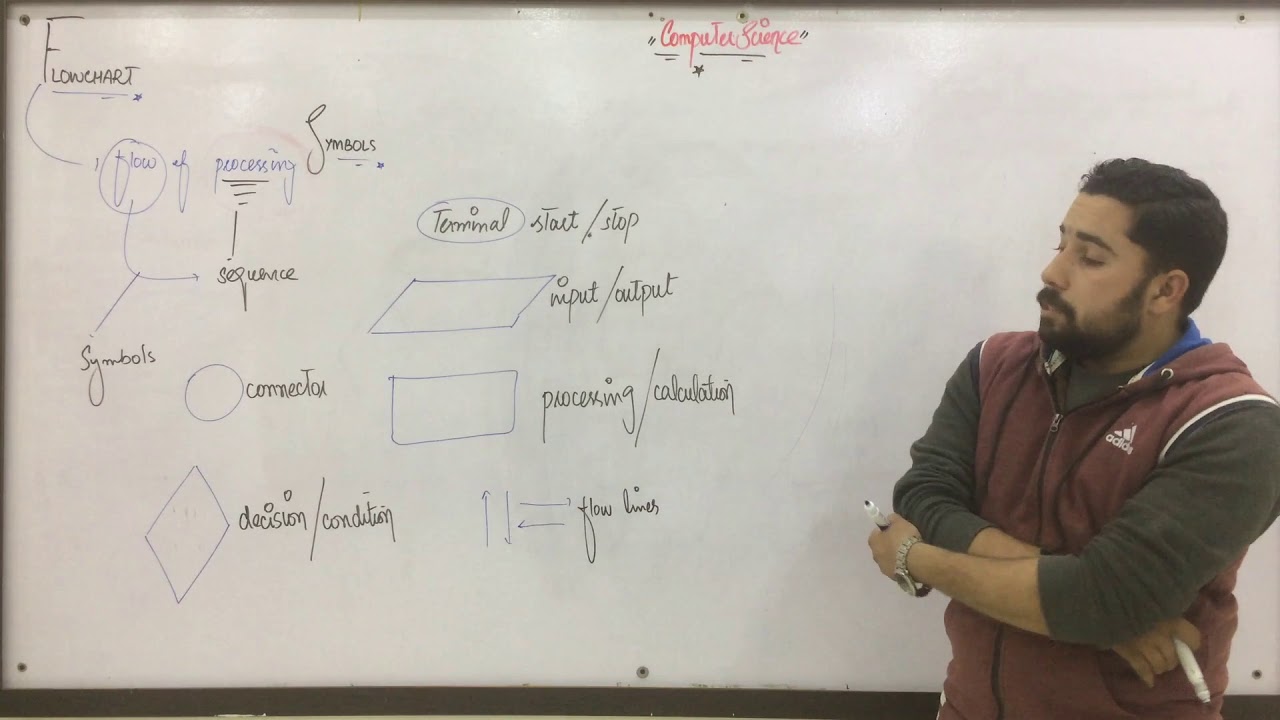 "Computer Science"
FLOWCHART
, flow of processing
SYMBOLS
Terminal start/stop
sequence
input/output
symbols
connector
processing/calculation
decision/condition
flow lines
adidas